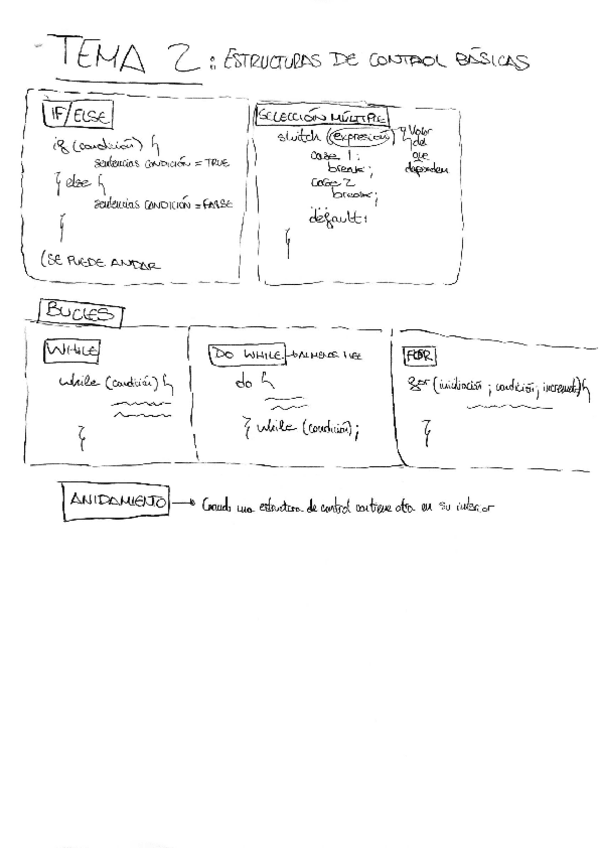 TEMA 2: ESTRUCTURAS DE CONTROL BÁSICAS
IF/ELSE
if (condición) {
sentencias CONDICIÓN = TRUE
} else {
sentencias CONDICIÓN = FALSE
}
(SE PUEDE ANIDAR
SELECCIÓN MÚLTIPLE
switch (expresión) {
Valor
del
que
dependen
case 1:
break;
case 2
break;
...
default:
}
BUCLES
WHILE
while (condición) {
}
DO WHILE
do {
} while (condición);
FOR
for (inicialización; condición; incremento) {
}
ANIDAMIENTO → Cuando una estructura de control contiene otra en su interior